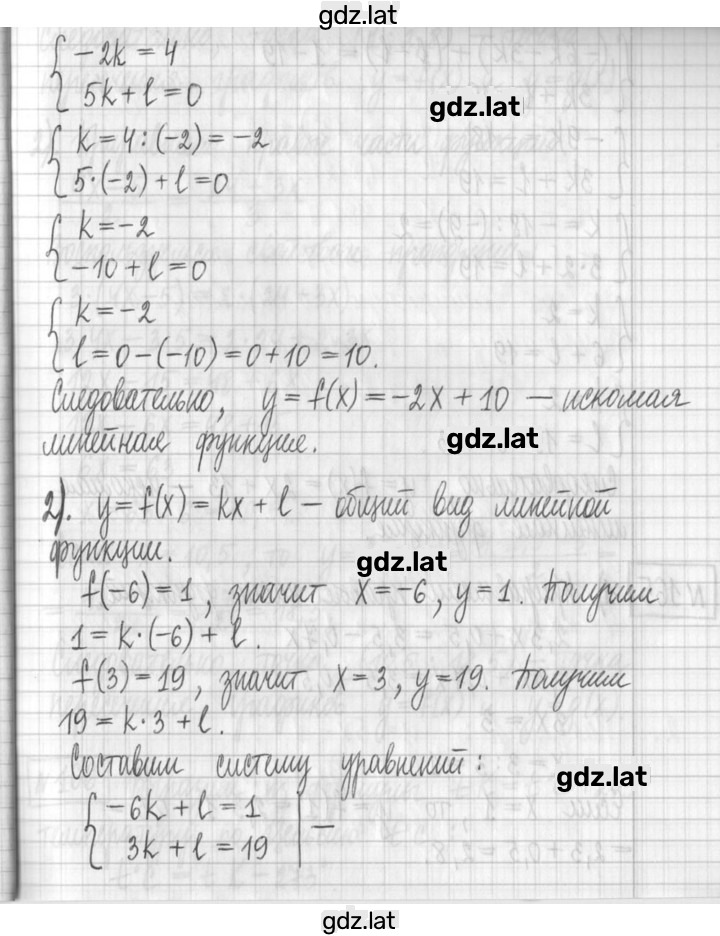 gdz.latat
{ -2k = 4
{ 5k + l = 0
gdz.lat
{ k = 4 : (-2) = -2
{ 5·(-2) + l = 0
{ k = -2
{ -10 + l = 0
{ k = -2
{ l = 0 - (-10) = 0 + 10 = 10.
Следовательно, y = f(x) = -2x + 10 — искомая
линейная функция.
gdz.lat
2). y = f(x) = kx + l — общий вид линейной
функции.
gdz.lat
f(-6) = 1, значит x = -6, y = 1. Получим
1 = k·(-6) + l.
f(3) = 19, значит x = 3, y = 19. Получим
19 = k·3 + l.
Составим систему уравнений:
gdz.lat
{ -6k + l = 1 | —
{ 3k + l = 19 |
gdz.lat